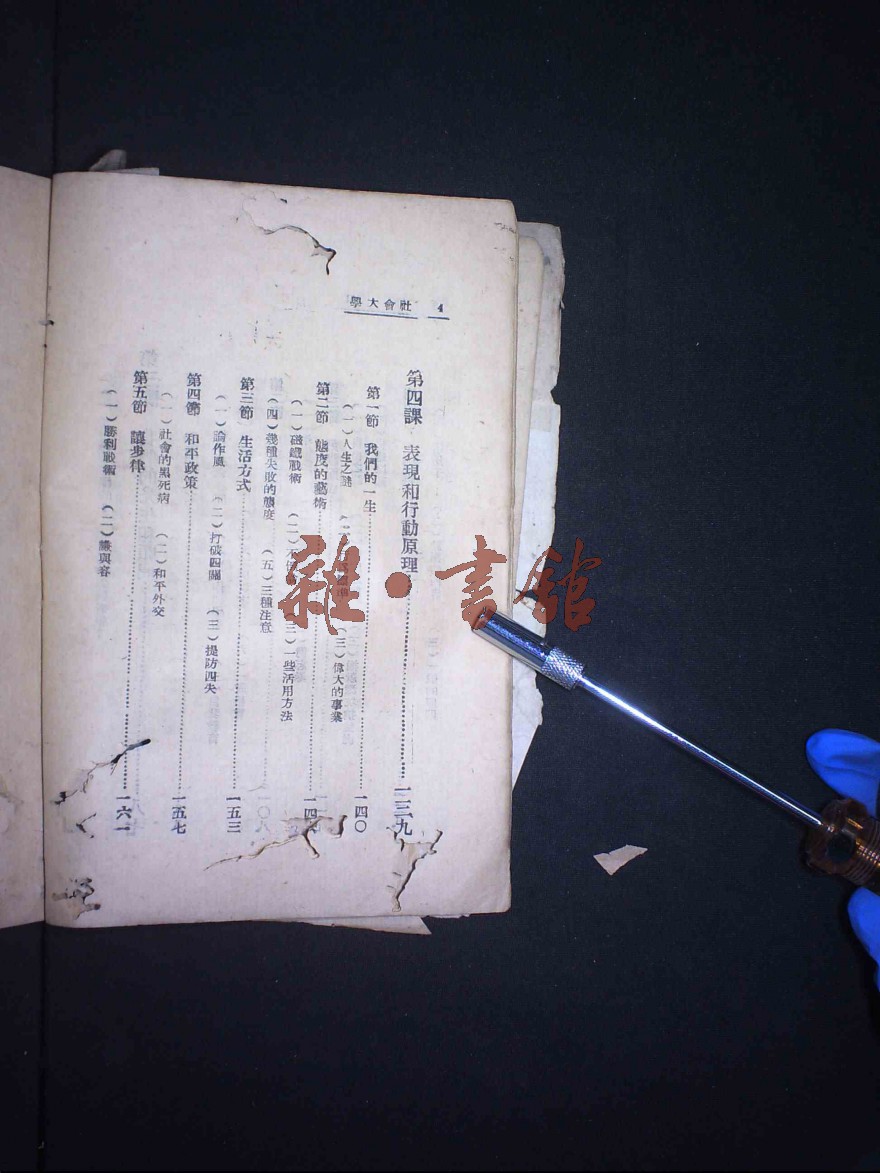 4 社會大學
第四課 表現和行動原理……一三九
第一節 我們的一生……一四〇
(一)人生之謎 (三)偉大的事業
第二節 態度的藝術……
(一)磁鐵戰術 (二)不 (三)一些活用方法
(四)幾種失敗的態度 (五)三種注意
第三節 生活方式……一五三
(一)論作風 (二)打破四關 (三)提防四失
第四節 和平政策……一五七
(一)社會的黑死病 (二)和平外交
第五節 讓步律……一六一
(一)勝利戰術 (二)讓與容
雜·書館